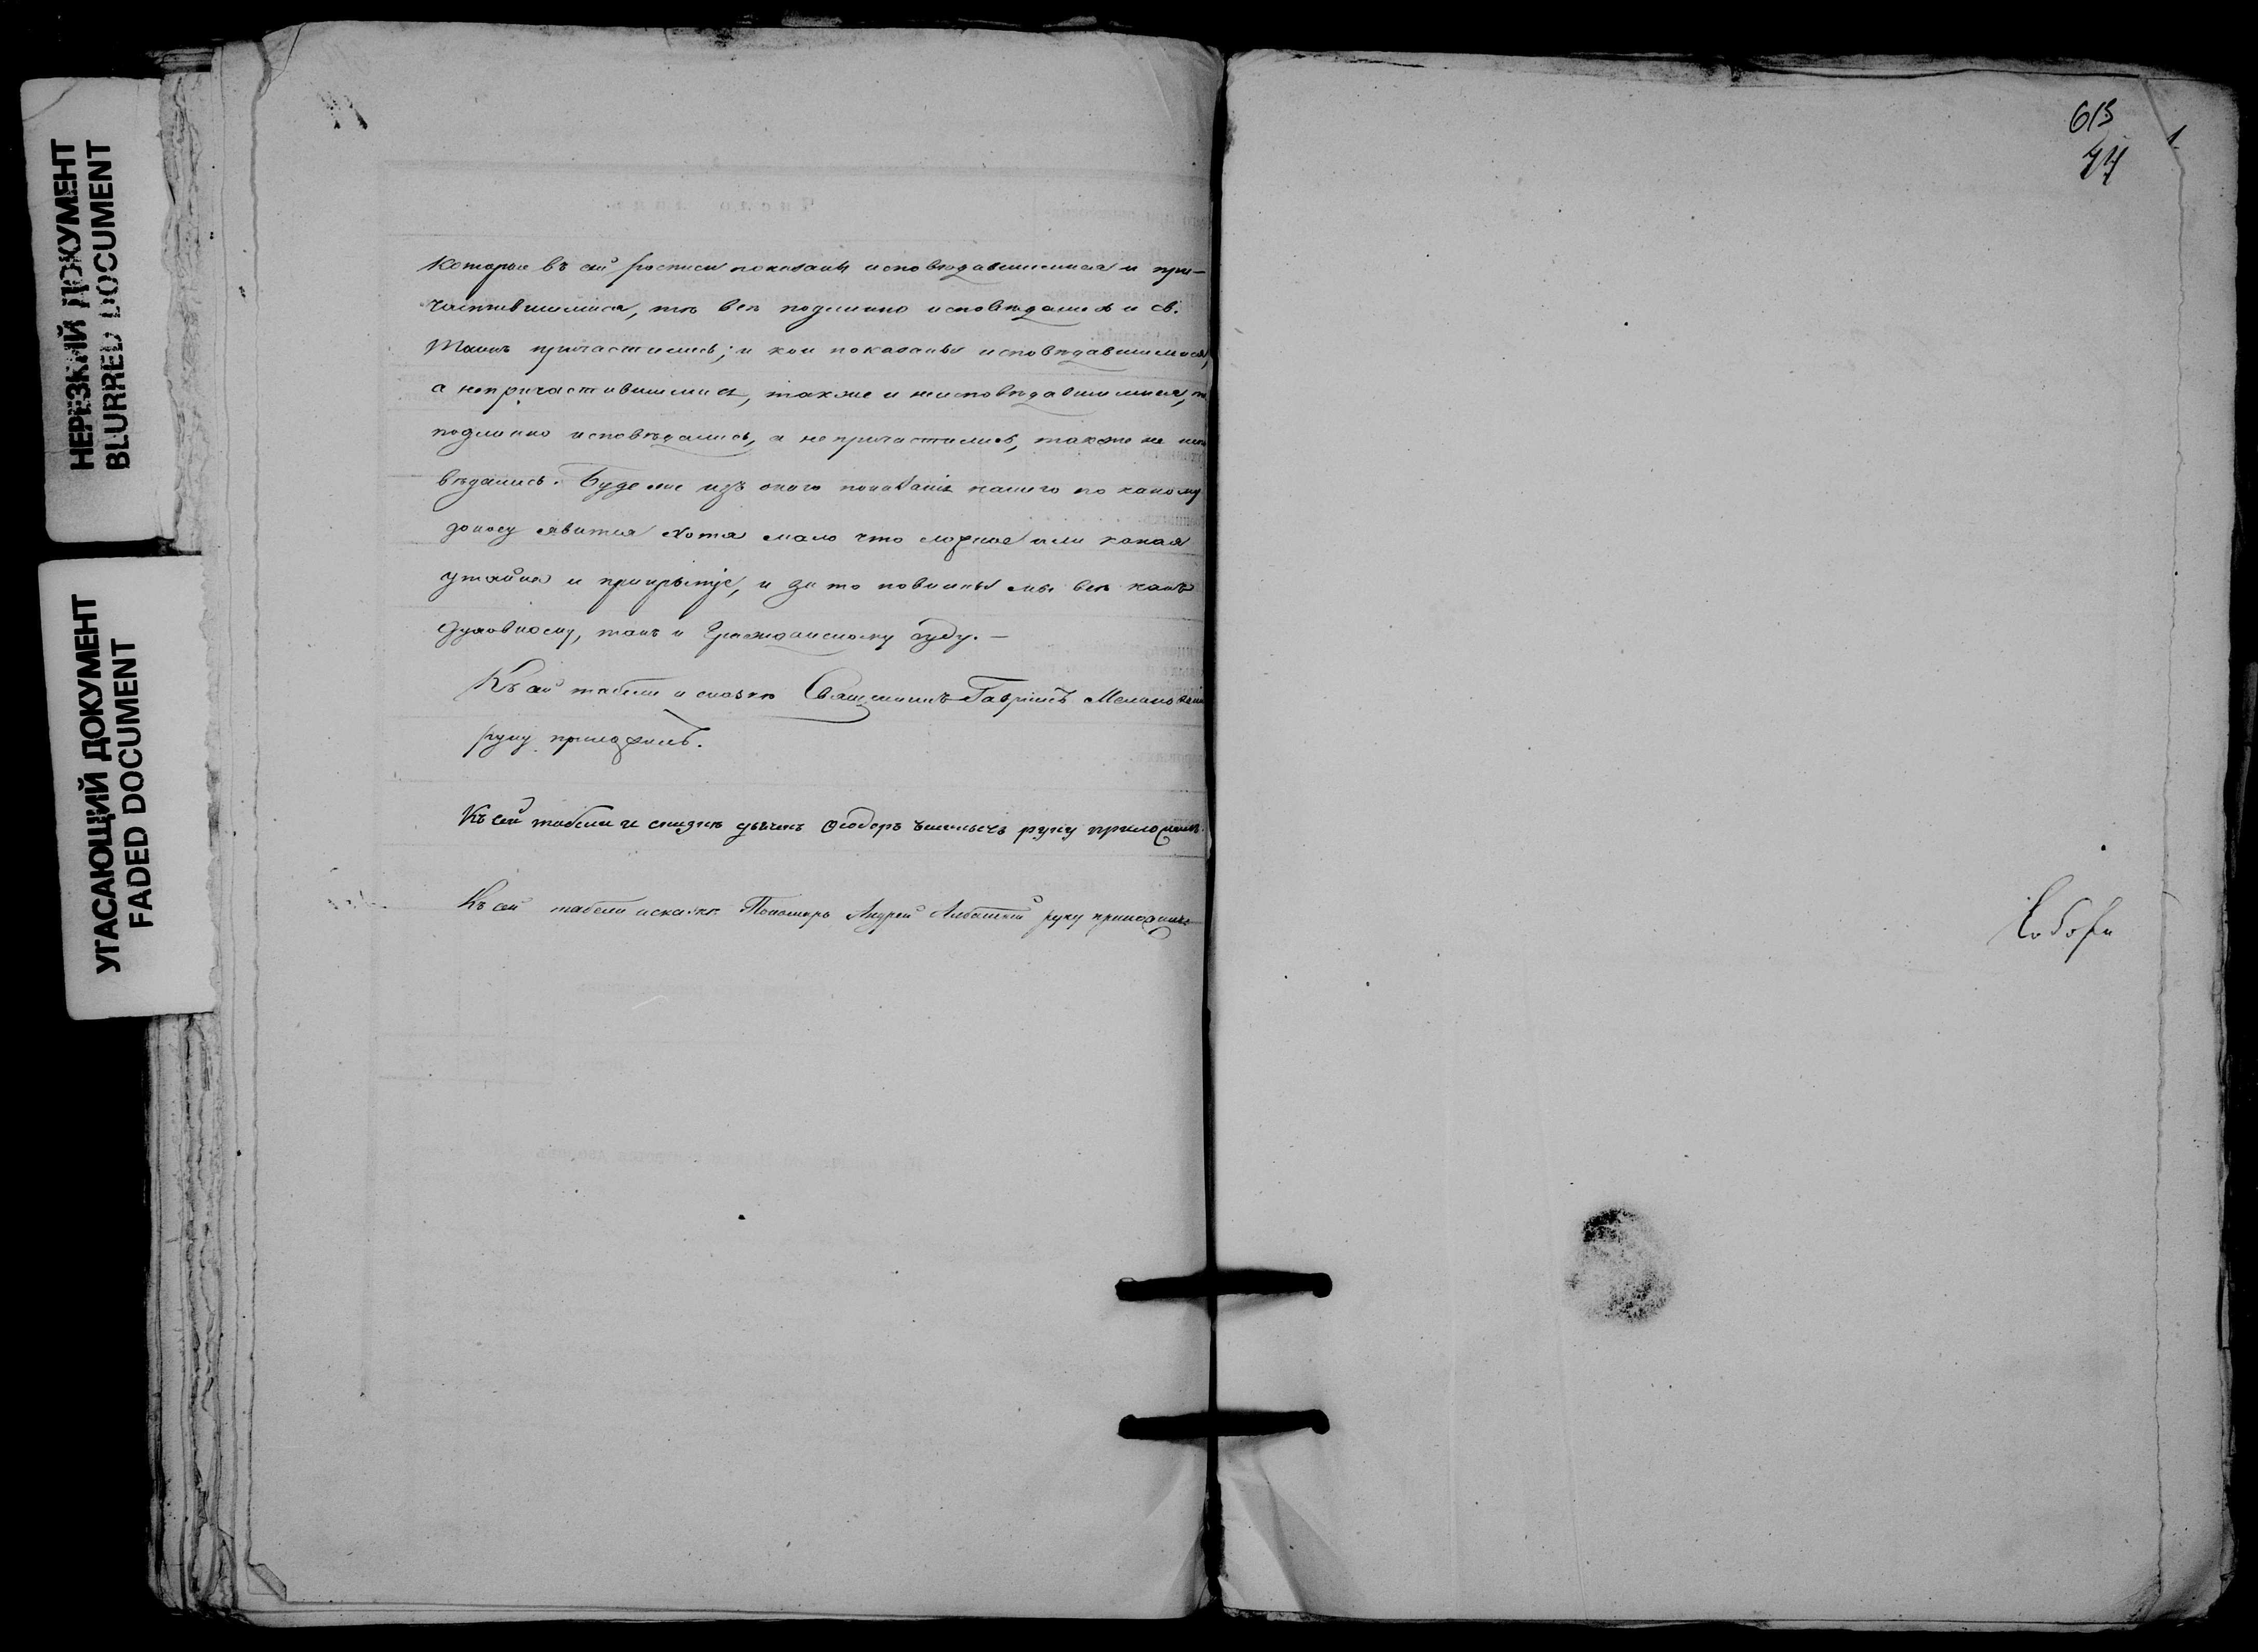 НЕРЕЗКИЙ ДОКУМЕНТ
BLURRED DOCUMENT
УГАСАЮЩИЙ ДОКУМЕНТ
FADED DOCUMENT
Которые въ сей росписи показаны исповѣдавшимися и при-
частившимися, тѣ всѣ подлинно исповѣдались и св.
Таинъ причастились; и кои показаны исповѣдавшимися,
а непричастившимися, также и неисповѣдавшимися, тѣ
подлинно исповѣдались, а не причастились, также не испо
вѣдались. Буде же изъ онаго показанія нашего по какому
доносу явится хотя мало что ложное или какая
утайка и прикрытіе, и за то повинны мы всѣ какъ
Духовному, такъ и Гражданскому суду. —
Къ сей табели и сказкѣ Священникъ Гавріилъ
руку приложилъ.
Къ сей табели и сказкѣ дьячекъ Ѳеодоръ руку приложилъ.
Къ сей табели и сказкѣ Пономарь Андрей руку приложилъ
613
44
1